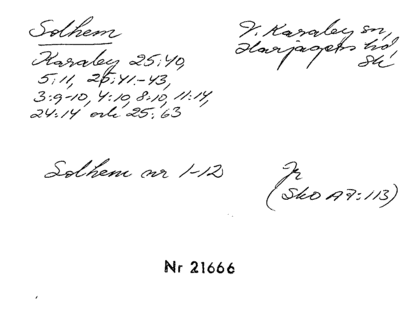 Solhem
V. Karaby sn,
Harjagers hd,
Sk
Karaby 25:40,
5:11, 25:41-43,
3:9-10, 4:10, 8:10, 11:14,
24:14 och 25:63
Solhem nr 1-12
Jr
(SkO A7:113)
Nr 21666